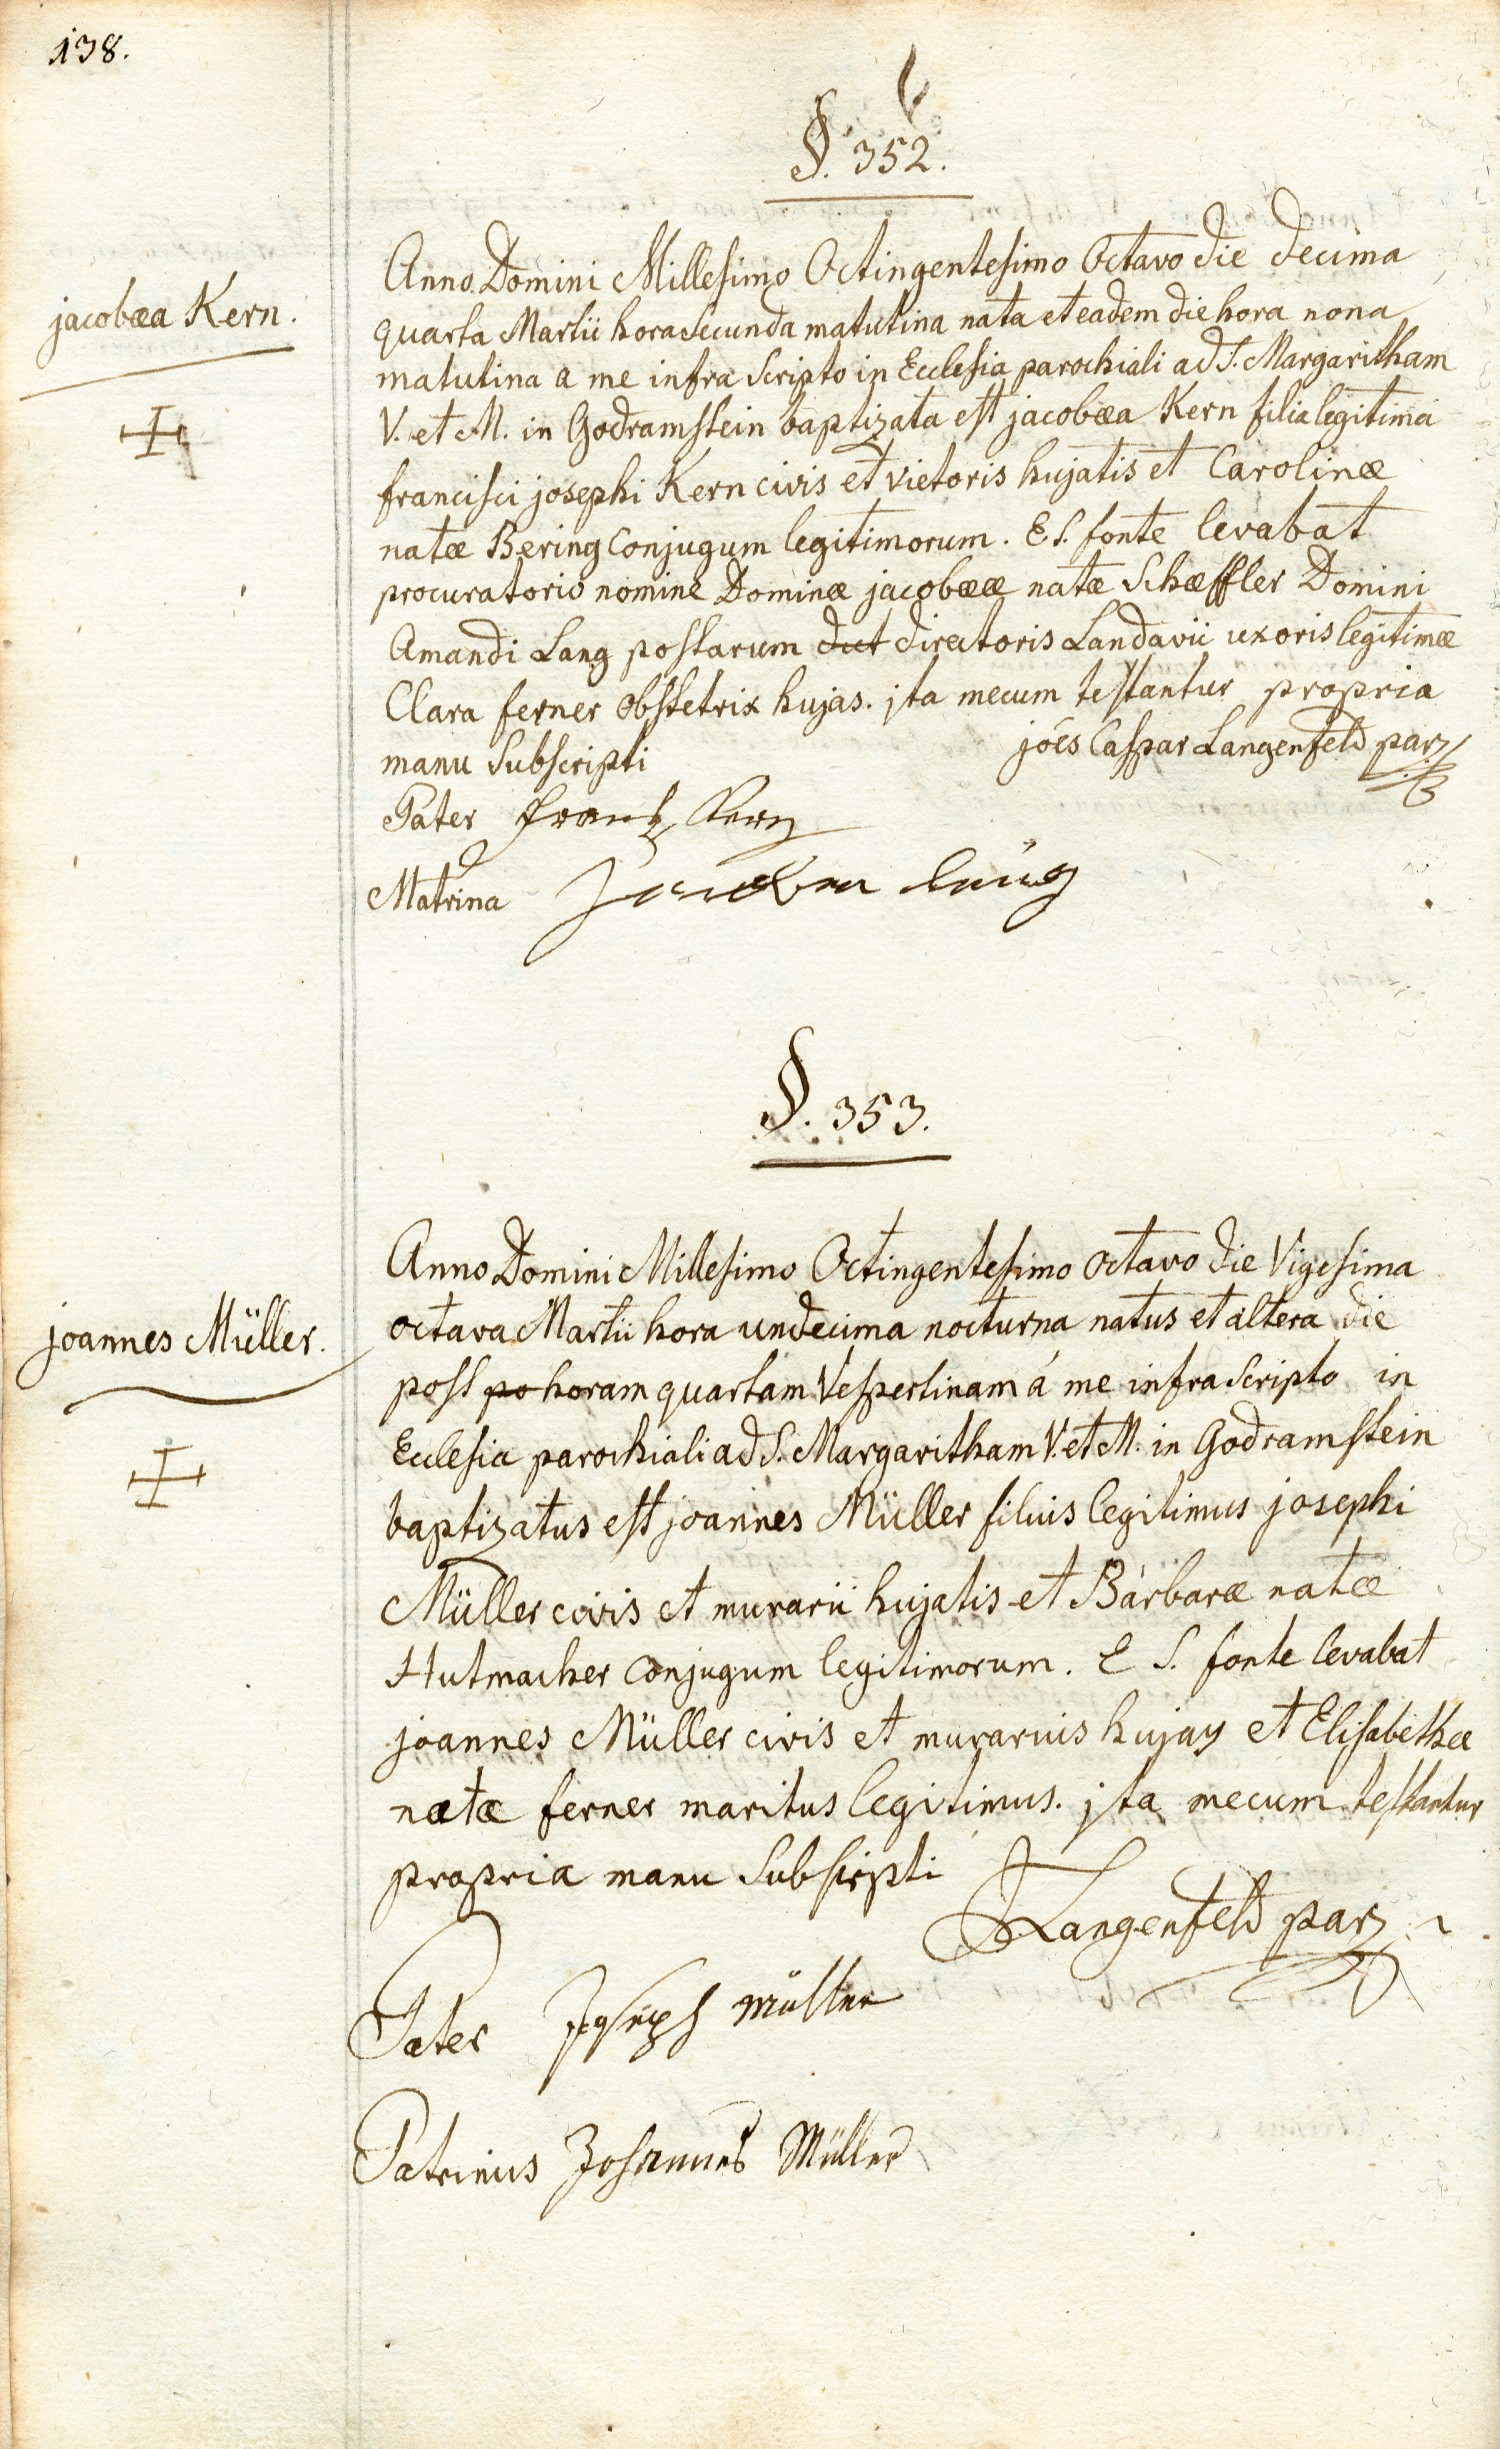 138.
§. 352.
jacobæa Kern.
Anno Domini Millesimo Octingentesimo Octavo die decima
quarta Martii hora secunda matutina nata et eadem die hora nona
matutina a me infra scripto in Ecclesia parochiali ad S. Margaritham
V. et M. in Godramstein baptizata est jacobæa Kern filia legitima
francisci josephi Kern civis et vietoris hujatis et Carolinæ
natæ Bering Conjugum legitimorum. E. S. fonte levabat
procuratorio nomine Dominæ jacobææ natæ Schæffler Domini
Amandi Lang postarum dict directoris Landavii uxoris legitimæ
Clara ferner obstetrix hujas. jta mecum testantur propria
manu Subscripti
jões Caspar Langenfeld par
Pater Frantz Kern
Matrina
§. 353.
joannes Müller.
Anno Domini Millesimo Octingentesimo octavo die Vigesima
octava Martii hora undecima nocturna natus et altera die
post po horam quartam Vespertinam á me infra scripto in
Ecclesia parochiali ad S. Margaritham V. et M. in Godramstein
baptizatus est joannes Müller filius legitimus josephi
Müller civis et murarii hujatis et Barbaræ natæ
Hutmacher conjugum legitimorum. E S. fonte levabat
joannes Müller civis et murarius hujas et Elisabethæ
natæ ferner maritus legitimus. jta mecum testantur
propria manu Subscripti
Langenfeld par
Pater Joseph Müller
Patrinus Johannes Müller